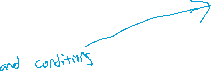 and conditing